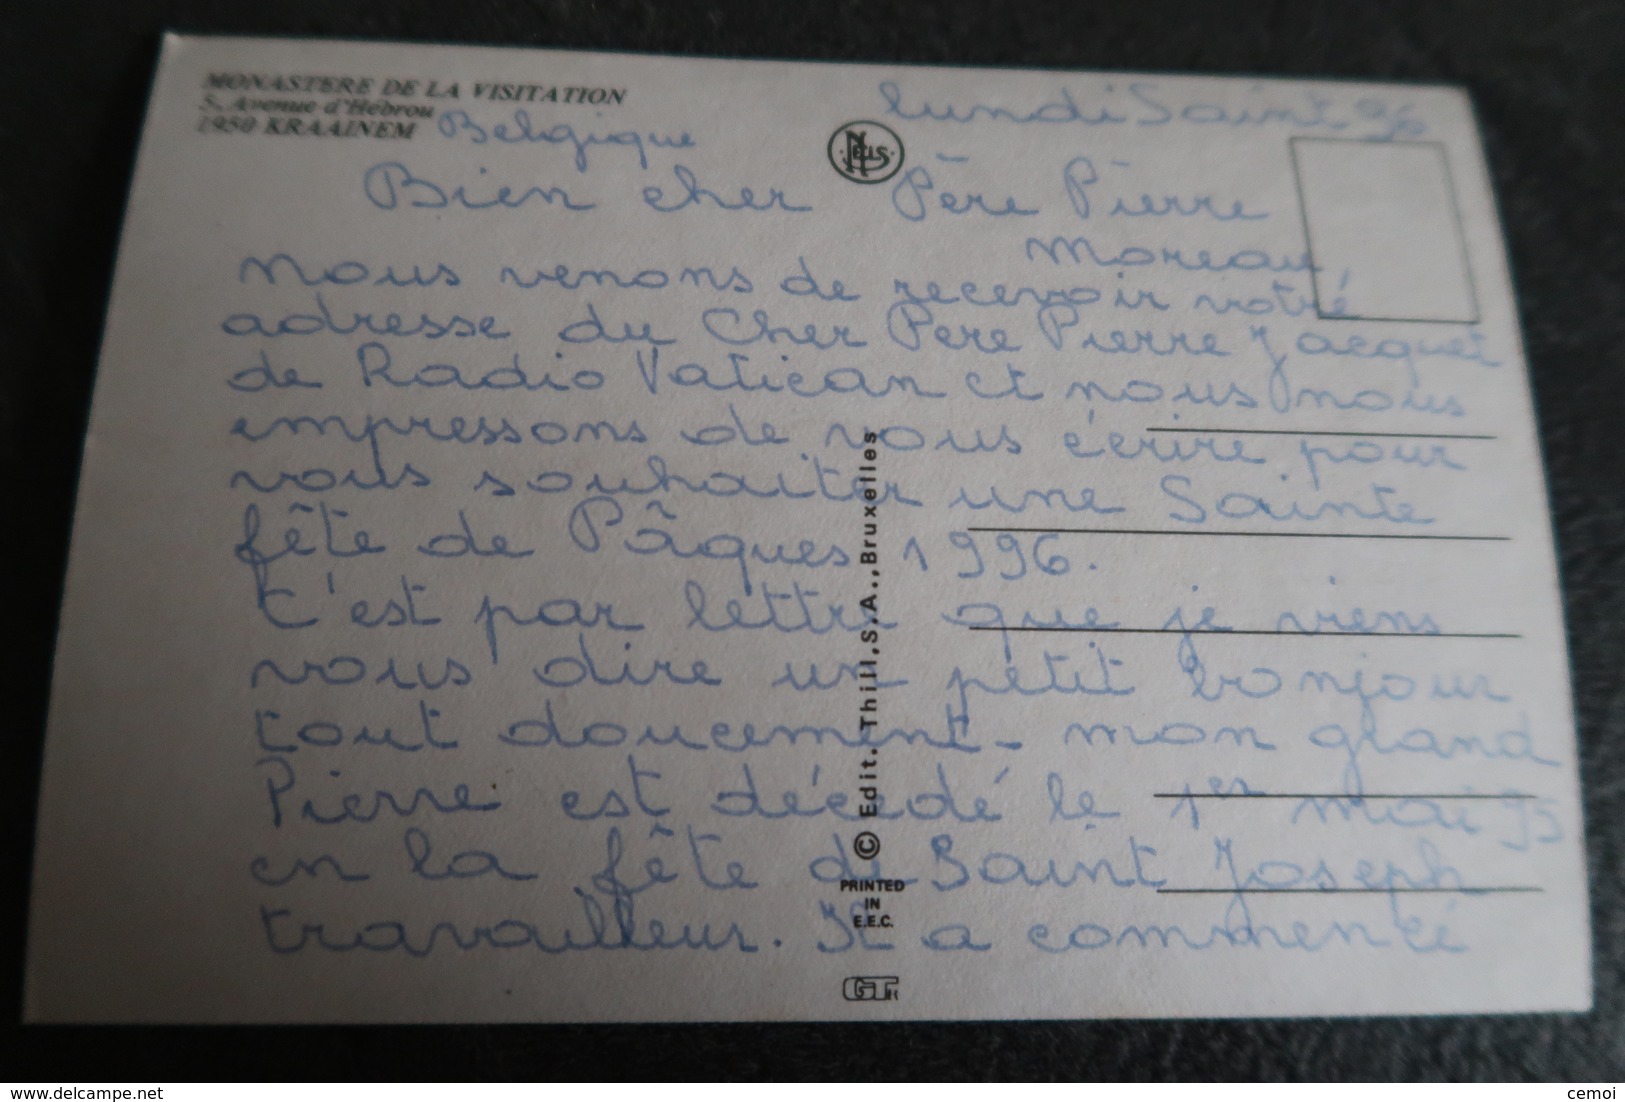 MONASTERE DE LA VISITATION
5, Avenue d'Hébrou
1950 KRAAINEM Belgique
lundi Saint 96
NELS
Bien cher Père Pierre
Moreau,
Nous venons de recevoir votre
adresse du Cher Père Pierre Jacquet
de Radio Vatican et nous nous
empressons de vous écrire pour
vous souhaiter une Sainte
fête de Pâques 1996.
C'est par lettre que je viens
vous dire un petit bonjour
tout doucement - mon grand
Pierre est décédé le 1er mai 95
en la fête de Saint Joseph
travailleur. Il a commencé
© Edit. Thill, S.A., Bruxelles
PRINTED
IN
E.E.C.
GT
delcampe.net
cemoi